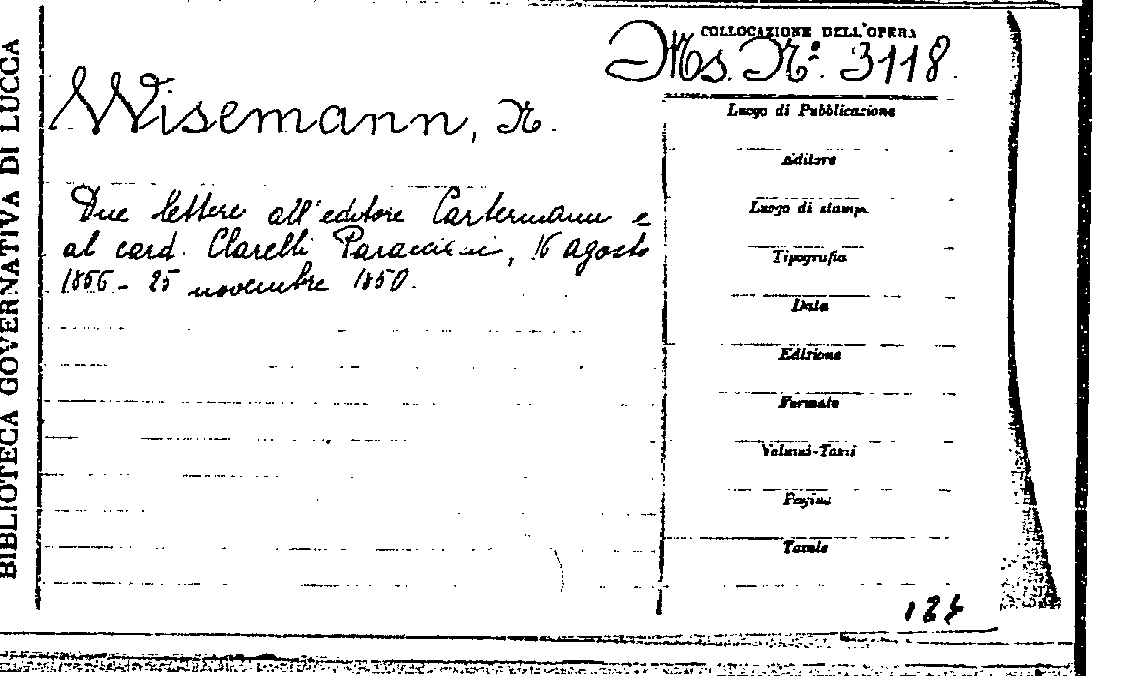 BIBLIOTECA GOVERNATIVA DI LUCCA
COLLOCAZIONE DELL'OPERA
Ms. N°. 3118.
Wisemann, N.
Due lettere all'editore Castermann e
al card. Clarelli Paracciani, 16 agosto
1856 - 25 novembre 1850.
Luogo di Pubblicazione
Editore
Luogo di stampa
Tipografia
Data
Edizione
Formato
Volumi-Tomi
Pagine
Tavole